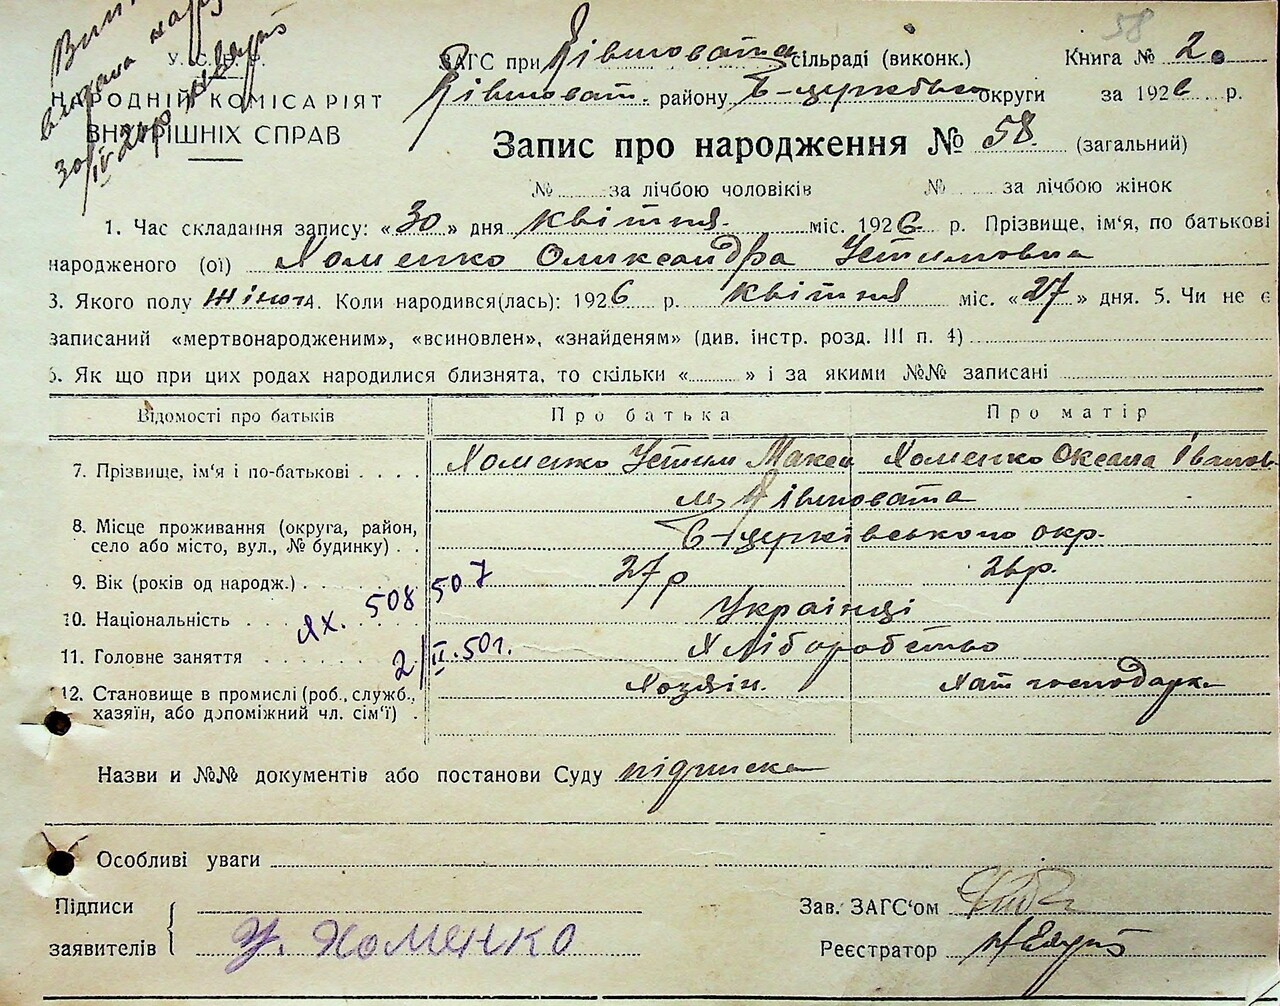 58
У.С.Р.Р.
НАРОДНІЙ КОМІСАРІЯТ
ВНУТРІШНІХ СПРАВ
Випис
видана
30/IV 26р
ЗАГС при сільраді (виконк.) Книга № 2
району Б-церквськ округи за 1926 р.
Запис про народження № 58. (загальний)
№ за лічбою чоловіків № за лічбою жінок
1. Час складання запису: «30» дня квітня міс. 1926 р. Прізвище, ім'я, по батькові
народженого (ої) Хоменко Олександра Устимовна
3. Якого полу жіноч. Коли народився(лась): 1926 р. квітня міс. «27» дня. 5. Чи не є
записаний «мертвонародженим», «всиновлен», «знайденям» (див. інстр. розд. III п. 4)
6. Як що при цих родах народилися близнята, то скільки « » і за якими №№ записані
Відомості про батьків Про батька Про матір
7. Прізвище, ім'я і по-батькові Хоменко Устим Макси Хоменко Оксана Іванов
8. Місце проживання (округа, район,
село або місто, вул., № будинку) Б-церківського окр.
9. Вік (років од народж.) 27 р 26р.
ЯХ. 508507
10. Національність Українці
11. Головне заняття Хліборобство
2/II.50г.
12. Становище в промислі (роб., служб.,
хазяїн, або допоміжний чл. сім'ї) Хозяїн. Хат господарка
Назви и №№ документів або постанови Суду підписка
Особливі уваги
Підписи
заявителів У. Хоменко
Зав. ЗАГС'ом
Реєстратор